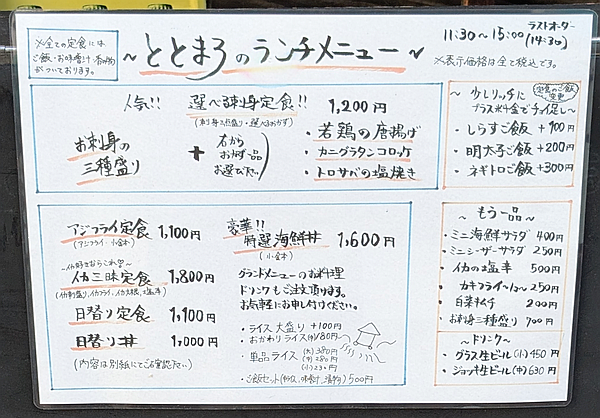 ※全ての定食には
ご飯・お味噌汁・香の物
がついております。
~ととまろのランチメニュー~
11:30~15:00
ラストオーダー
(14:30)
※表示価格は全て税込です。
人気!! 選べる刺身定食!! 1,200円
(刺身三点盛り・選べるおかず)
お刺身の
三種盛り
+
右から
おかず一品
お選び下さい
・若鶏の唐揚げ
・カニグラタンコロッケ
・トロサバの塩焼き
~少しリッチに
定食のご飯
変更
プラス料金でチョイ足し~
・しらすご飯 +100円
・明太子ご飯 +200円
・ネギトロご飯 +300円
アジフライ定食 1,100円
(アジフライ・小金本)
~イカ好きならこれ~
イカ三昧定食 1,800円
(イカ刺盛り,イカフライ,イカ大根,塩辛)
日替り定食 1,100円
日替り丼 1,000円
(内容は別紙にてご確認下さい)
豪華!!
特選海鮮丼 1,600円
グランドメニューのお料理
ドリンクもご注文頂けます。
お気軽にお申し付けください。
・ライス大盛り +100円
おかわりライス (中)180円
・単品ライス (大)380円
(中)280円
(小)230円
・ご飯セット 500円
~もう一品~
・ミニ海鮮サラダ 400円
・ミニシーザーサラダ 250円
・イカの塩辛 500円
・カキフライ 250円
・白菜キムチ 200円
・お刺身三種盛り 900円
~ドリンク~
・グラス生ビール(小)450円
・ジョッキ生ビール(中)630円